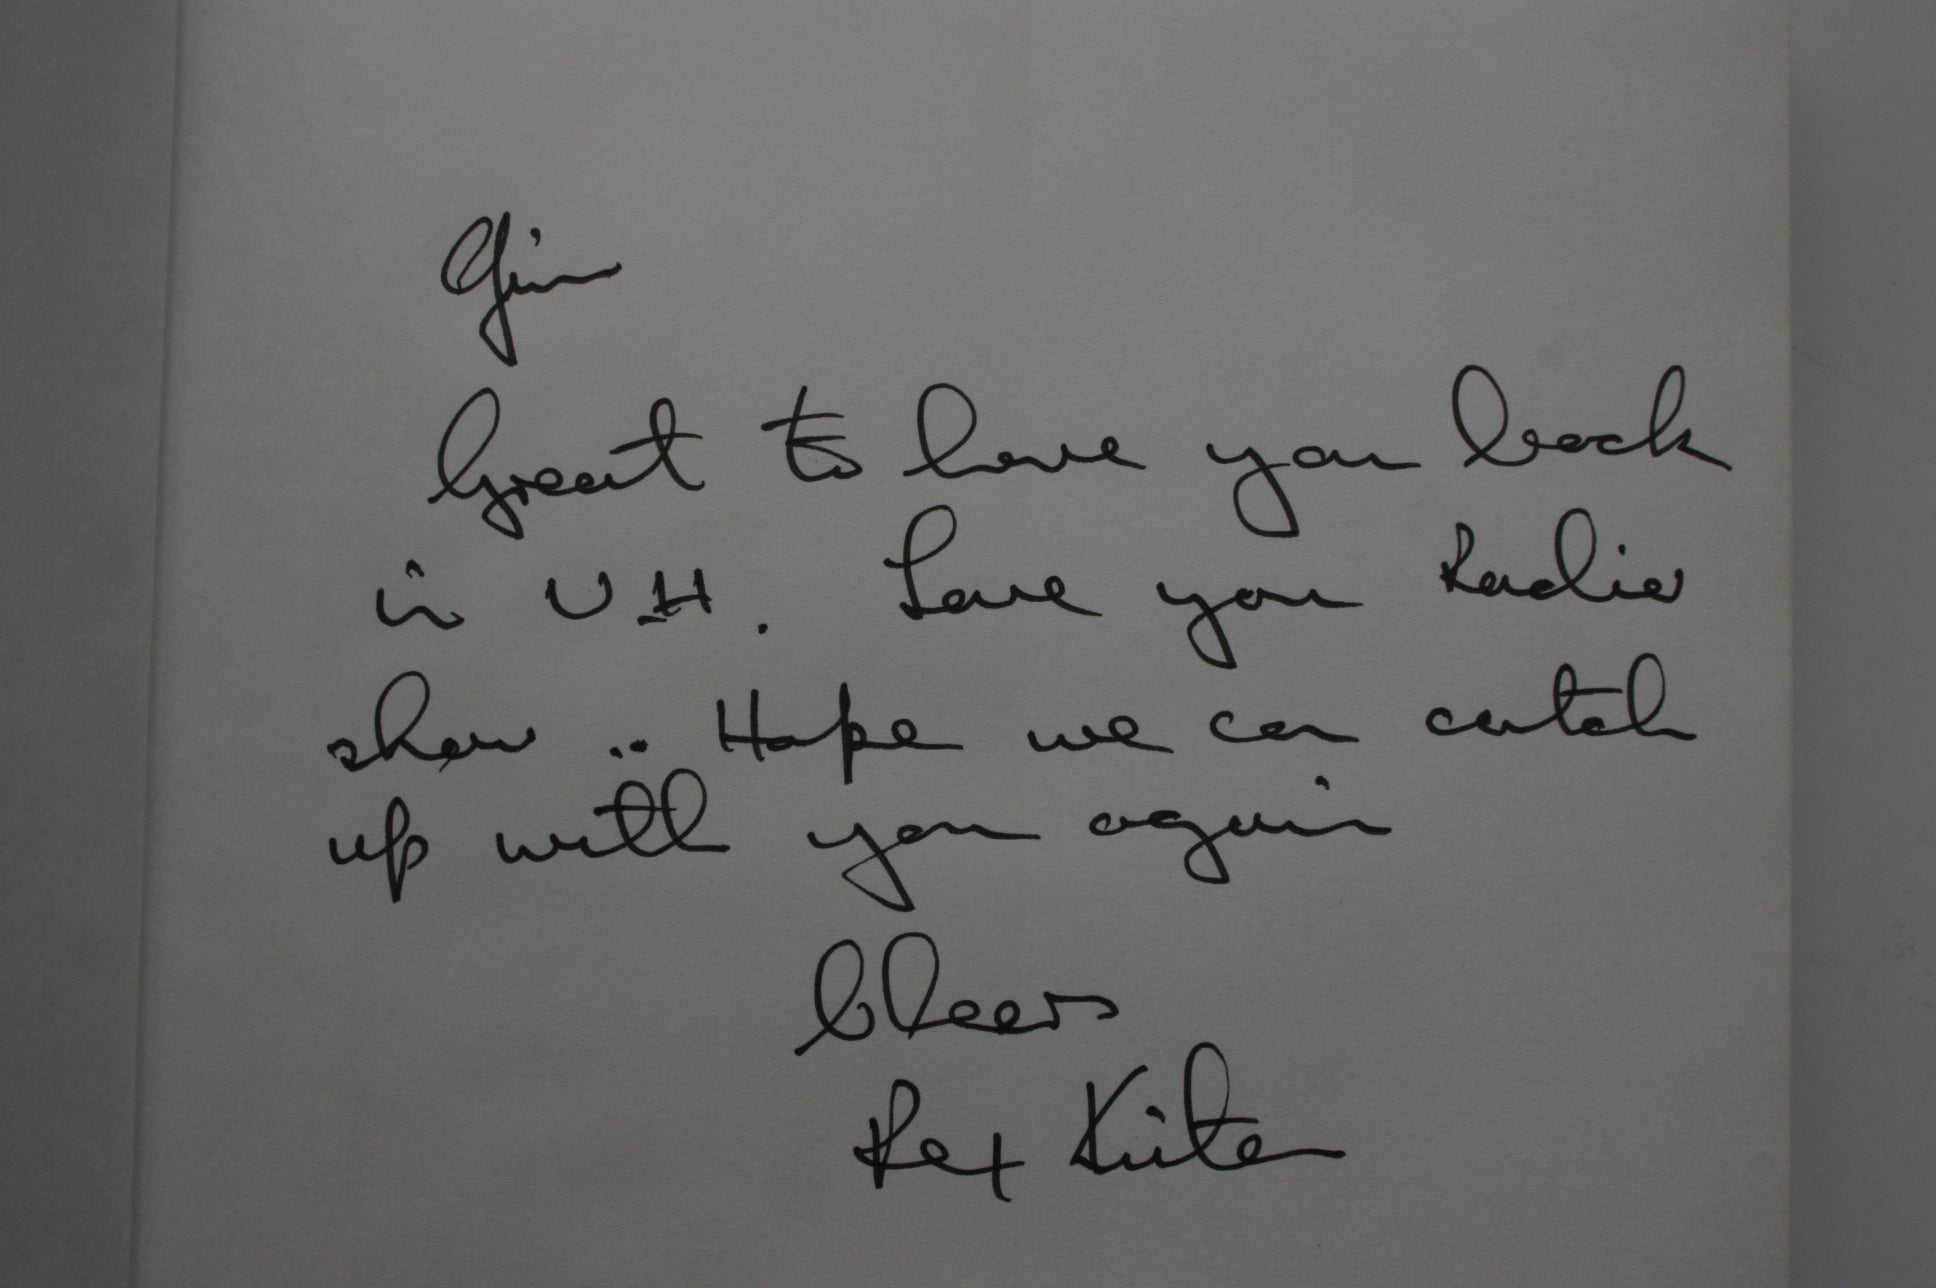 Jim
Great to have you back
in U.H. Love your Radio
show .. Hope we can catch
up with you again
Cheers
Rex